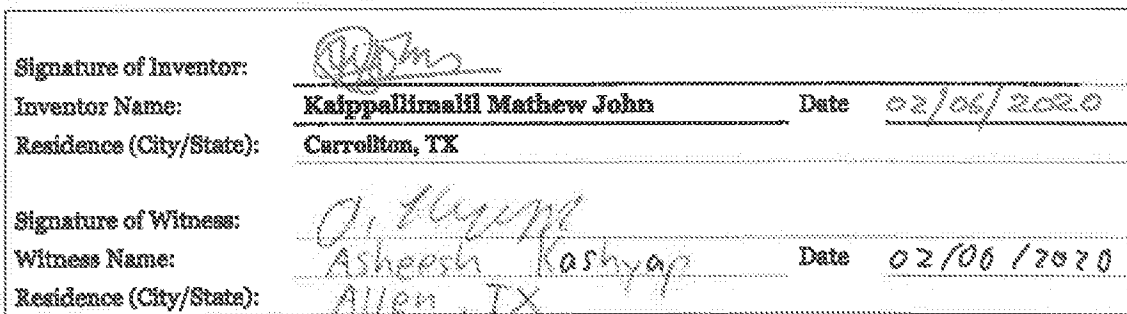 Signature of Inventor:
Inventor Name: Kaippallimalil Mathew John Date 02/06/2020
Residence (City/State): Carrollton, TX
Signature of Witness:
Witness Name: Asheesh Kashyap Date 02/06/2020
Residence (City/State): Allen, TX